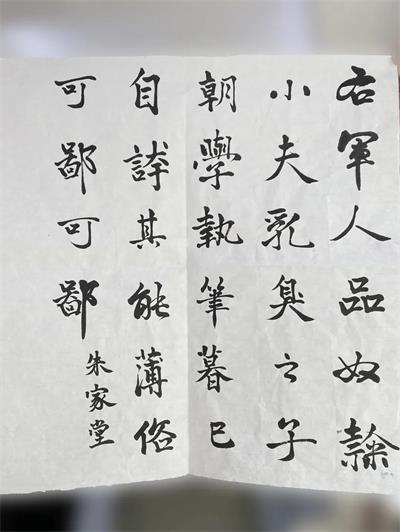 右軍人品奴隸
小夫乳臭之子
朝學執筆暮已
自誇其能薄俗
可鄙可鄙
朱家堂